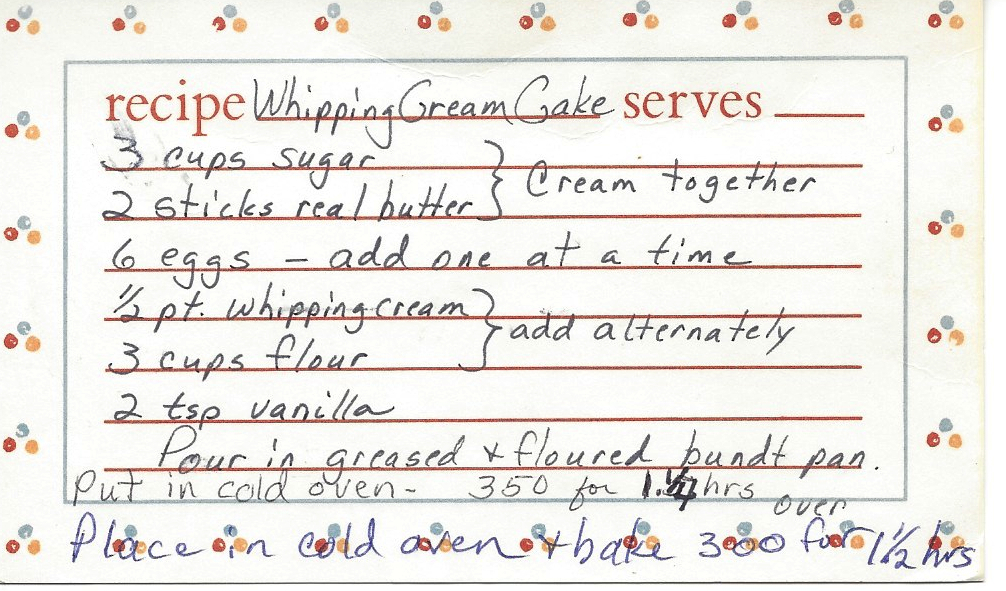 recipe Whipping Cream Cake serves
3 cups sugar
2 sticks real butter } Cream together
6 eggs - add one at a time
1/2 pt. whipping cream
3 cups flour } add alternately
2 tsp vanilla
Pour in greased & floured bundt pan.
Put in cold oven - 350 for 1 1/4 hrs
over
Place in cold oven & bake 300 for 1 1/2 hrs